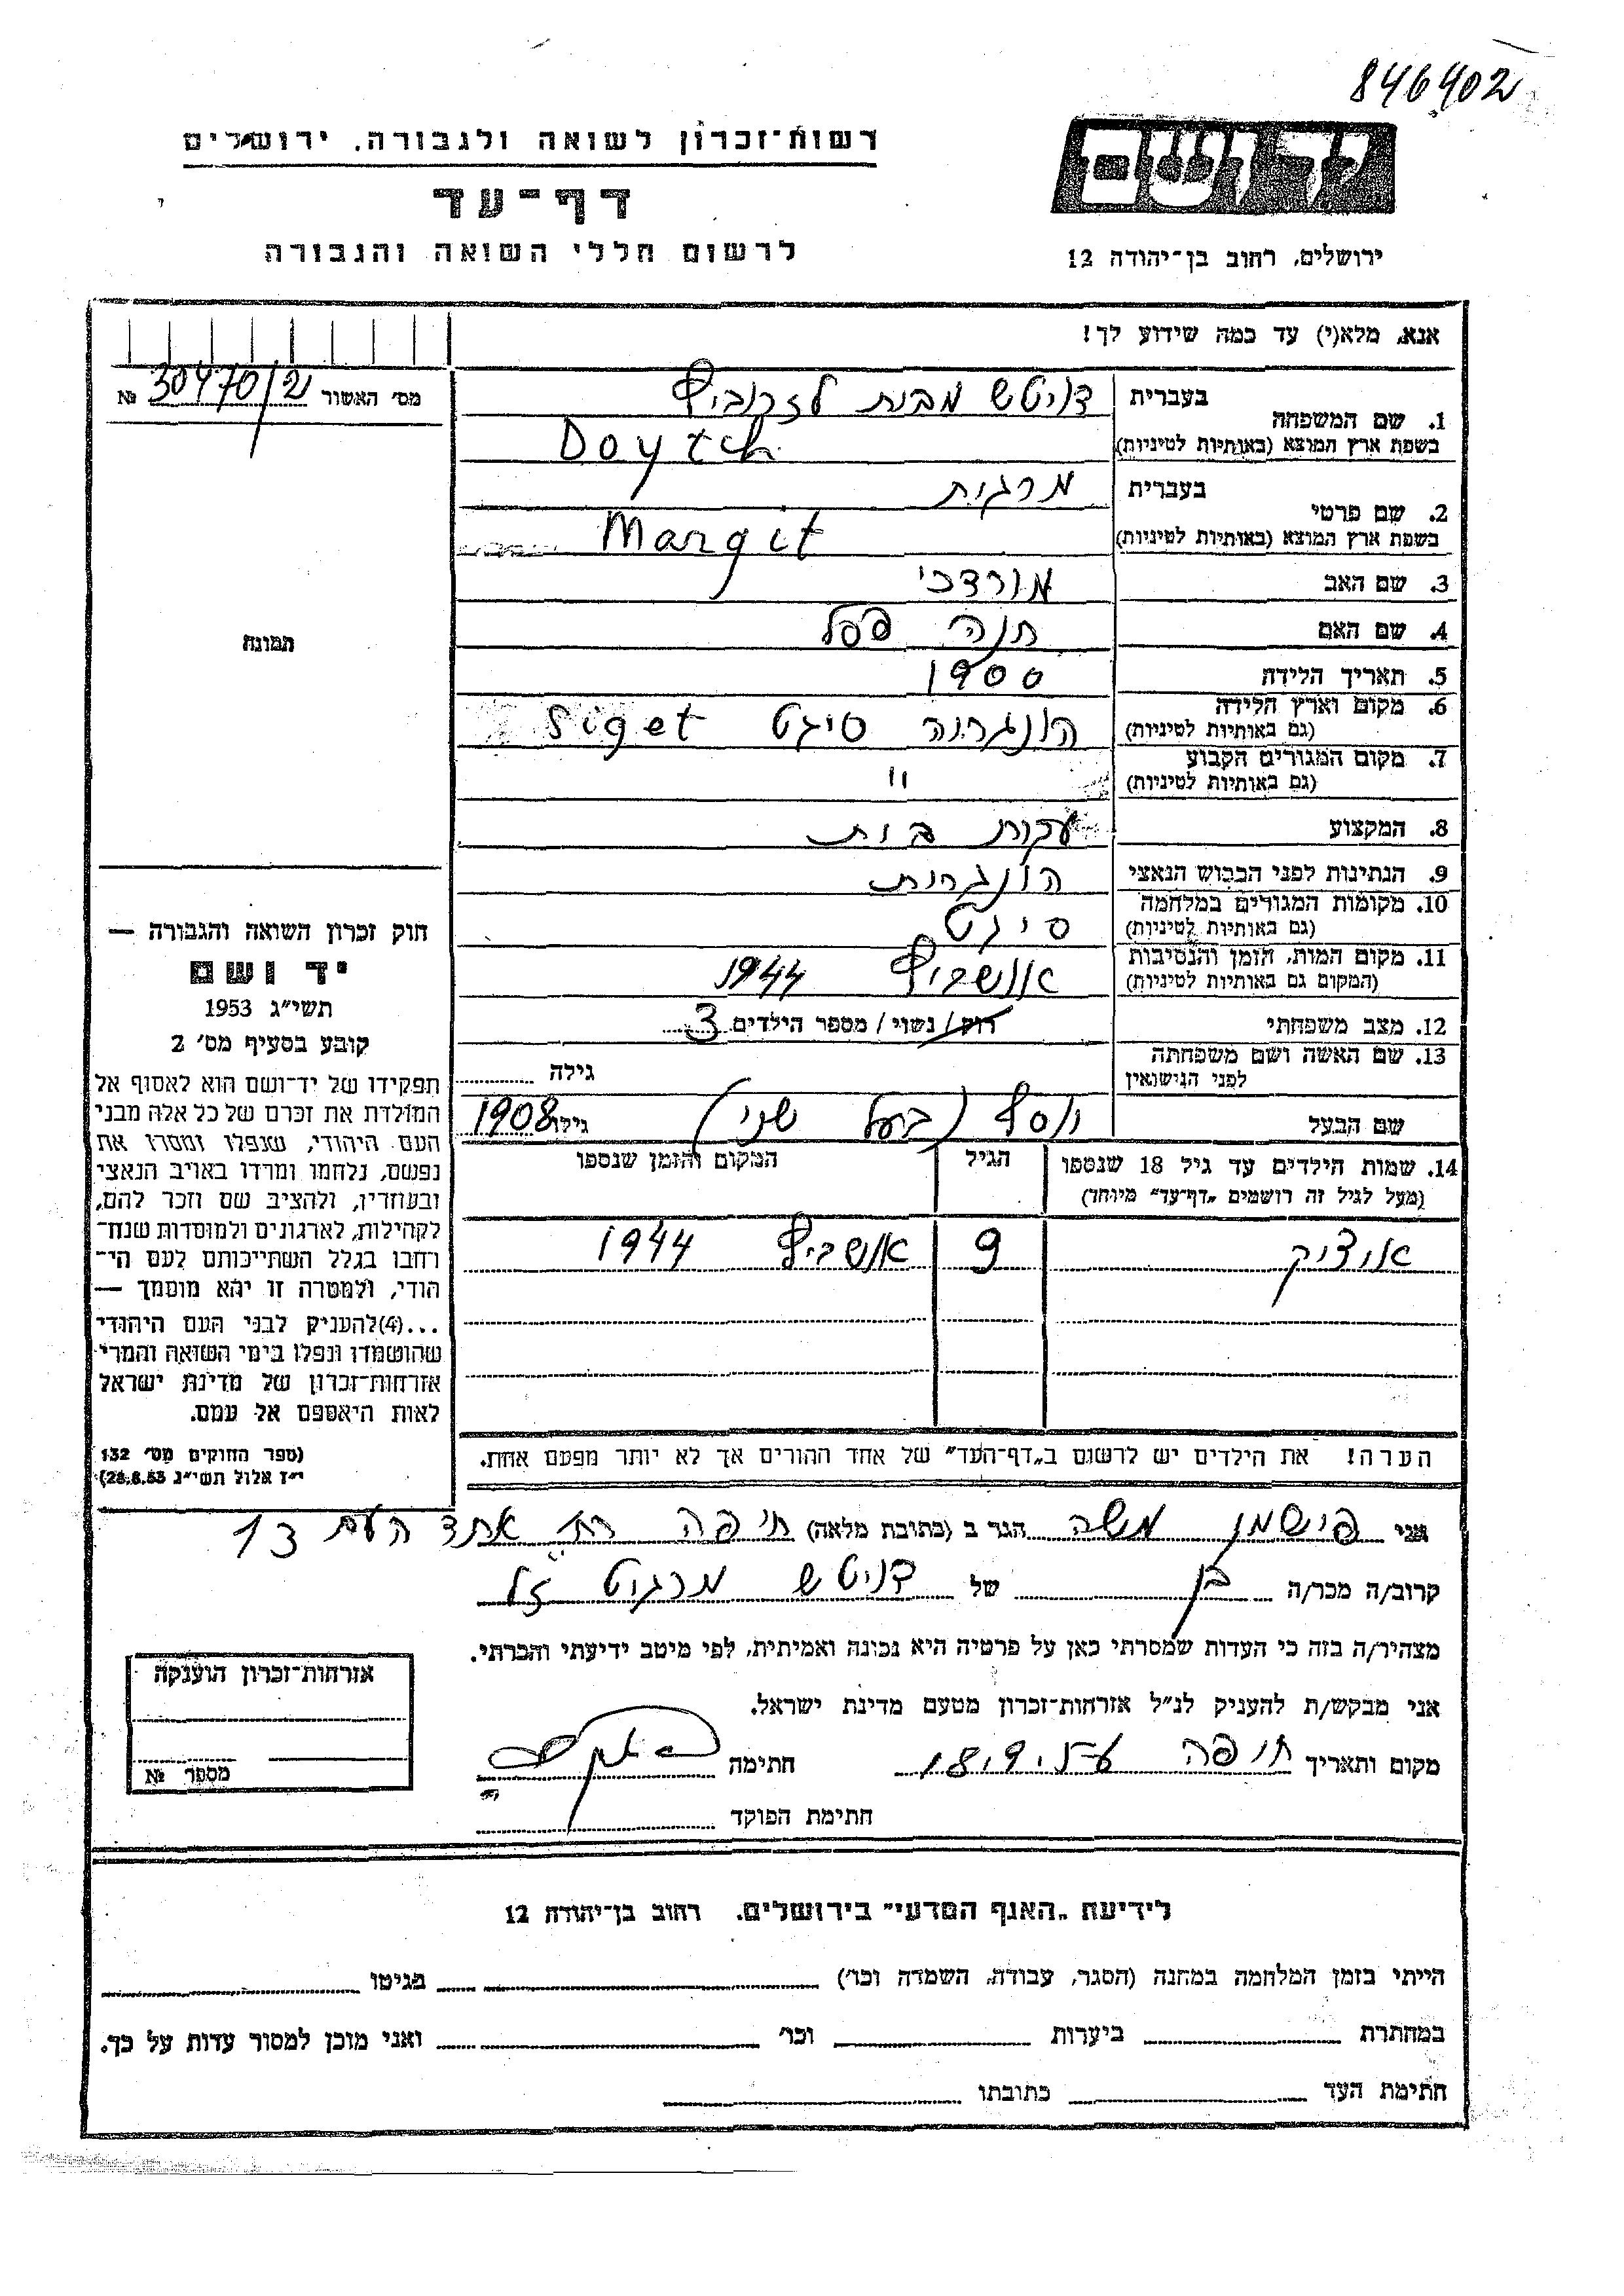 846402
רשות־זכרון לשואה ולגבורה, ירושלים
דף־עד
לרשום חללי השואה והגבורה
ירושלים, רחוב בן־יהודה 12
אנא, מלא(י) עד כמה שידוע לך!
מס׳ האשור 30470/2 №
1. שם המשפחה בעברית דויטש מבית לזרוביץ
בשפת ארץ המוצא (באותיות לטיניות) Doytch
2. שם פרטי בעברית מרגית
בשפת ארץ המוצא (באותיות לטיניות) Margit
3. שם האב מורדכי
4. שם האם חנה פסל
5. תאריך הלידה 1900
6. מקום וארץ הלידה (גם באותיות לטיניות) הונגריה סיגט Siget
7. מקום המגורים הקבוע (גם באותיות לטיניות) "
8. המקצוע עקרת בית
9. הנתינות לפני הכבוש הנאצי הונגרית
10. מקומות המגורים במלחמה (גם באותיות לטיניות) סיגט
11. מקום המות, הזמן והנסיבות (המקום גם באותיות לטיניות) אושביץ 1944
12. מצב משפחתי רוק/ נשוי / מספר הילדים 3
13. שם האשה ושם משפחתה לפני הנישואין גילה
שם הבעל יוסף (בעל שני) גילו 1908
14. שמות הילדים עד גיל 18 שנספו (מעל לגיל זה רושמים „דף־עד” מיוחד) הגיל המקום והזמן שנספו
אודיק 9 אושביץ 1944
הערה! את הילדים יש לרשום ב„דף־העד” של אחד ההורים אך לא יותר מפעם אחת.
תמונה
חוק זכרון השואה והגבורה —
יד ושם
תשי״ג 1953
קובע בסעיף מס׳ 2
תפקידו של יד־ושם הוא לאסוף אל
המולדת את זכרם של כל אלה מבני
העם היהודי, שנפלו ומסרו את
נפשם, נלחמו ומרדו באויב הנאצי
ובעוזריו, ולהציב שם וזכר להם,
לקהילות, לארגונים ולמוסדות שנח־
רחבו בגלל השתייכותם לעם הי־
הודי, ולמטרה זו יהא מוסמך —
...(4)להעניק לבני העם היהודי
שהושמדו ונפלו בימי השואה והמרי
אזרחות־זכרון של מדינת ישראל
לאות היאספם אל עמם.
(ספר החוקים מס׳ 132
י״ז אלול תשי״ג 28.8.53)
אני פישמן משה הגר ב (כתובת מלאה) חיפה רח אחד העם 13
קרוב/ה מכר/ה בן של דויטש מרגיט ז״ל
מצהיר/ה בזה כי העדות שמסרתי כאן על פרטיה היא נכונה ואמיתית, לפי מיטב ידיעתי והכרתי.
אני מבקש/ת להעניק לנ״ל אזרחות־זכרון מטעם מדינת ישראל.
מקום ותאריך חיפה חתימה
חתימת הפוקד
אזרחות־זכרון הוענקה
מספר №
לידיעת „האגף המדעי” בירושלים, רחוב בן־יהודה 12
הייתי בזמן המלחמה במחנה (הסגר, עבודה, השמדה וכו׳) בגיטו
במחתרת ביערות וכו׳ ואני מוכן למסור עדות על כך.
חתימת העד כתובתו